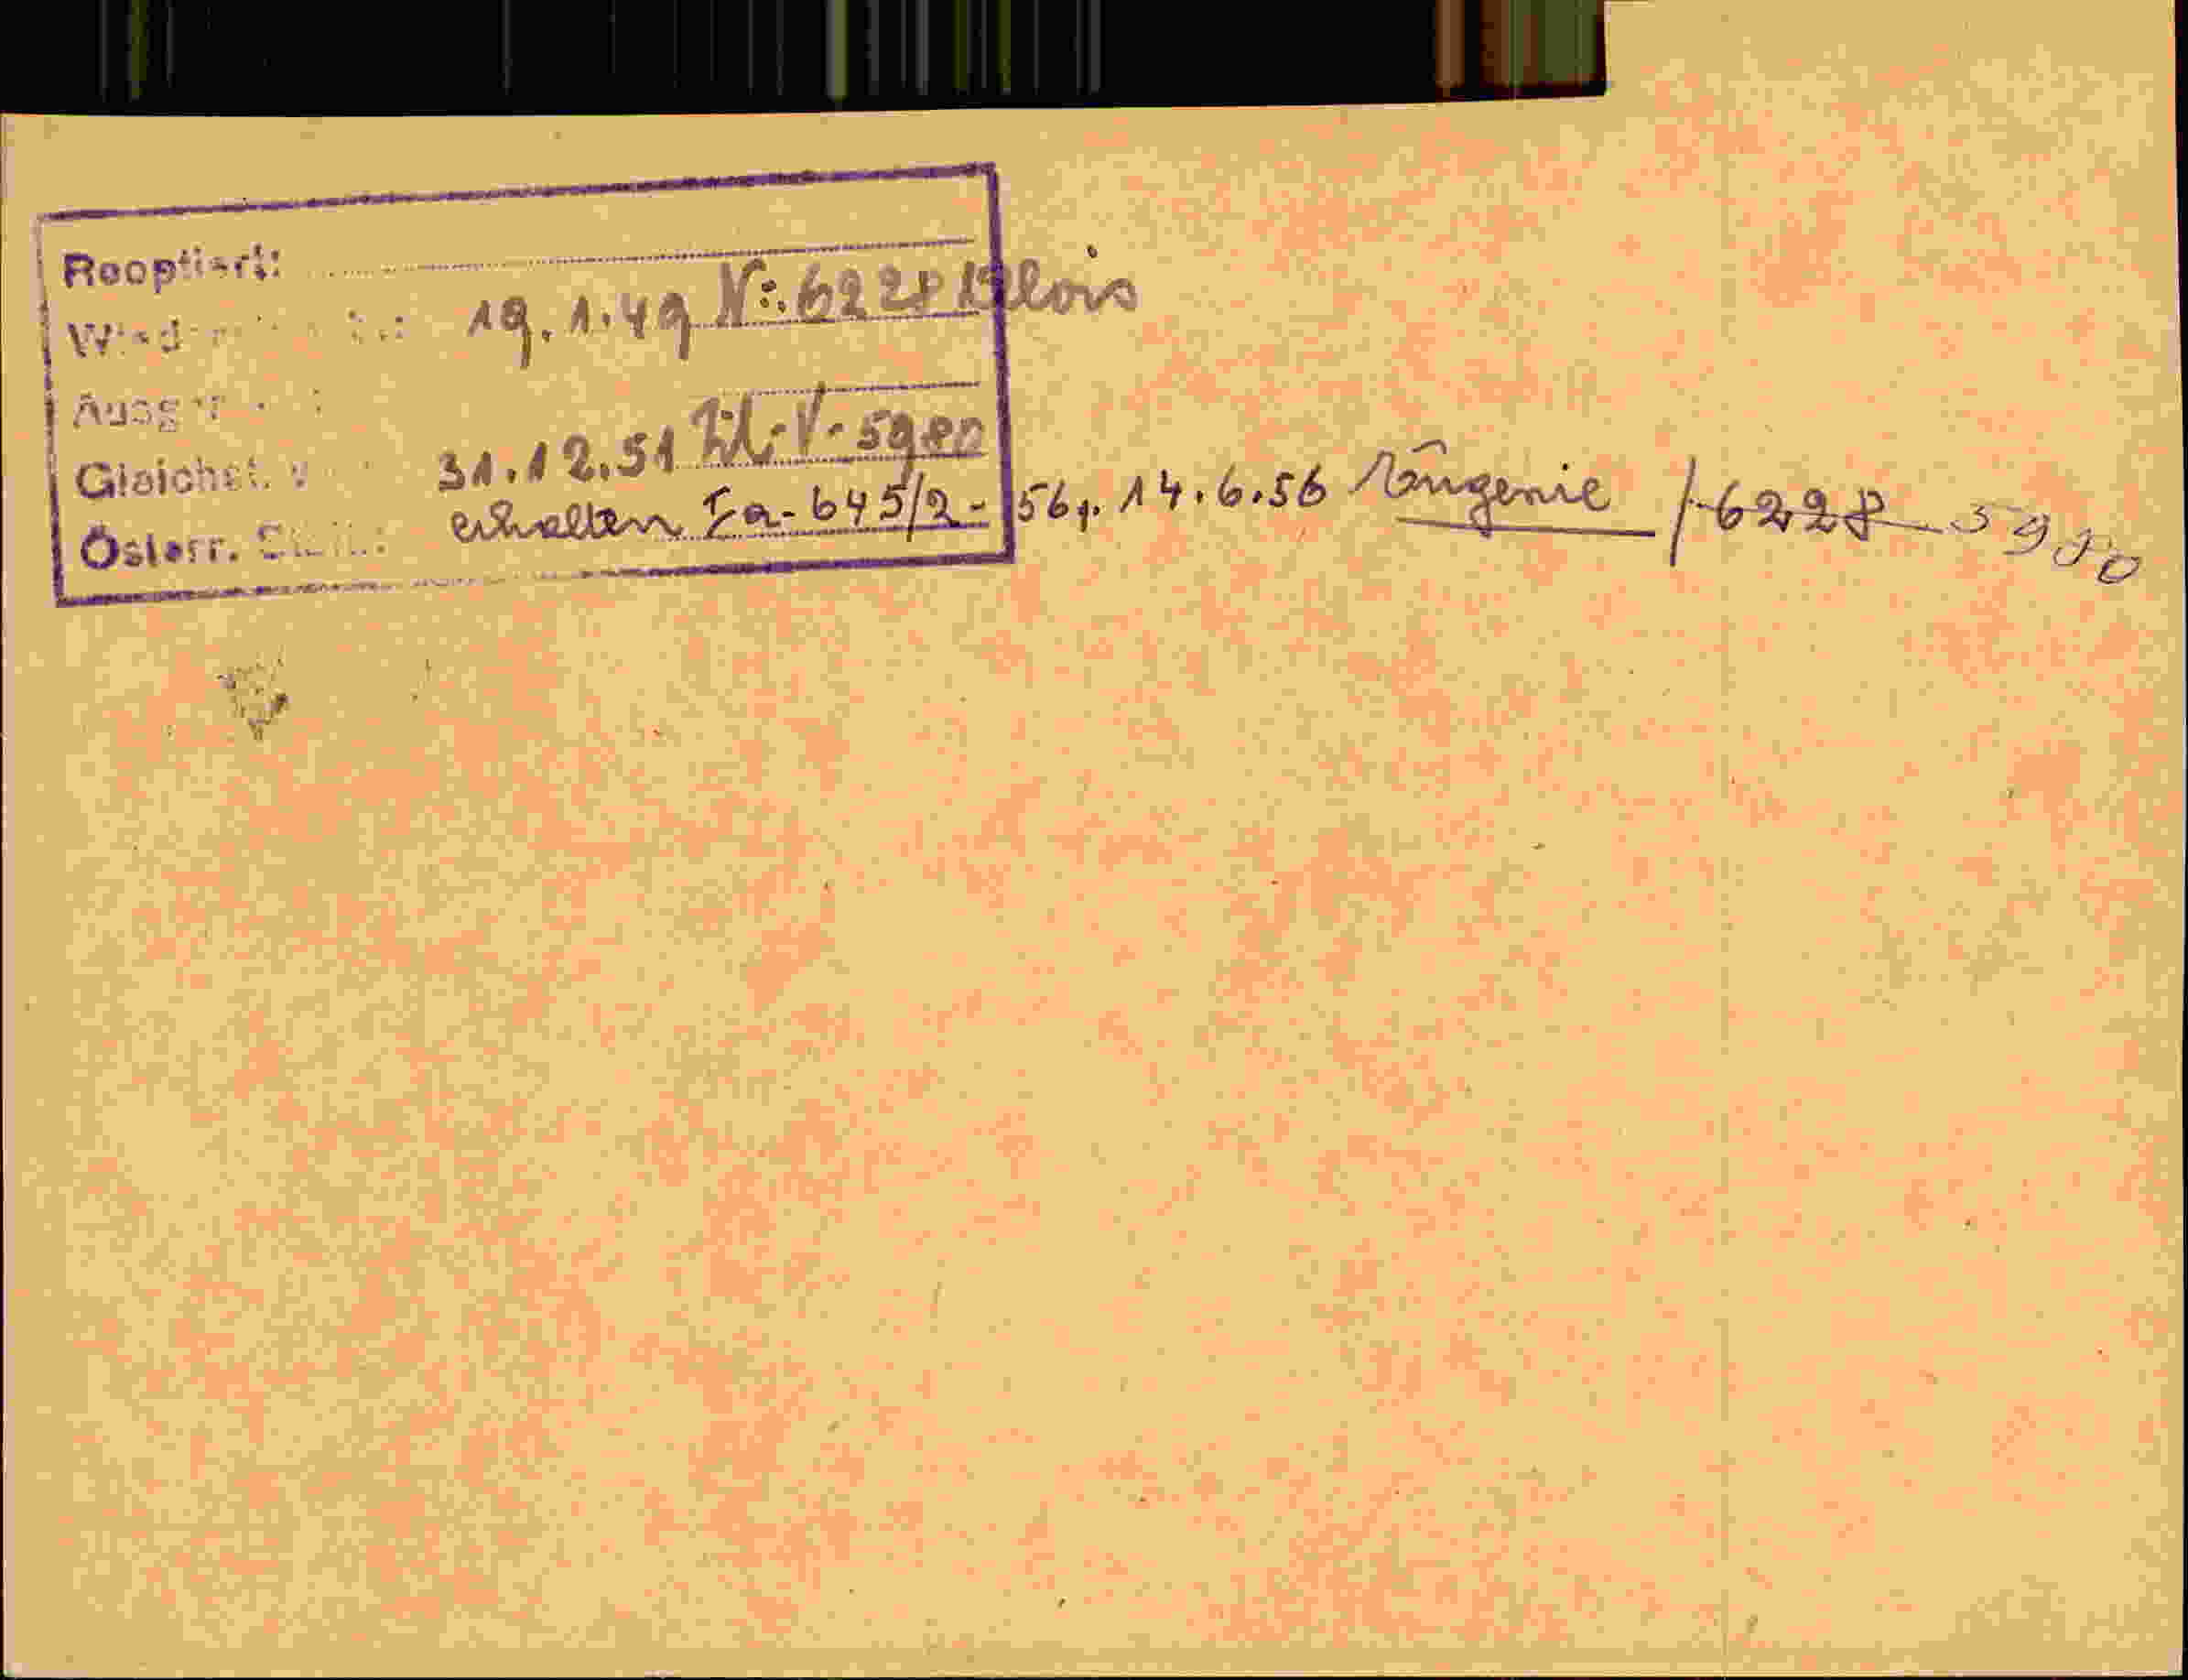 Reoptiert:
19.1.49 N: 6228 Alois
Gleichst.
31.12.51 Zl. V-5980
Österr.
erhalten Ia-645/2-56, 14.6.56 Eugenie / 6228 5980